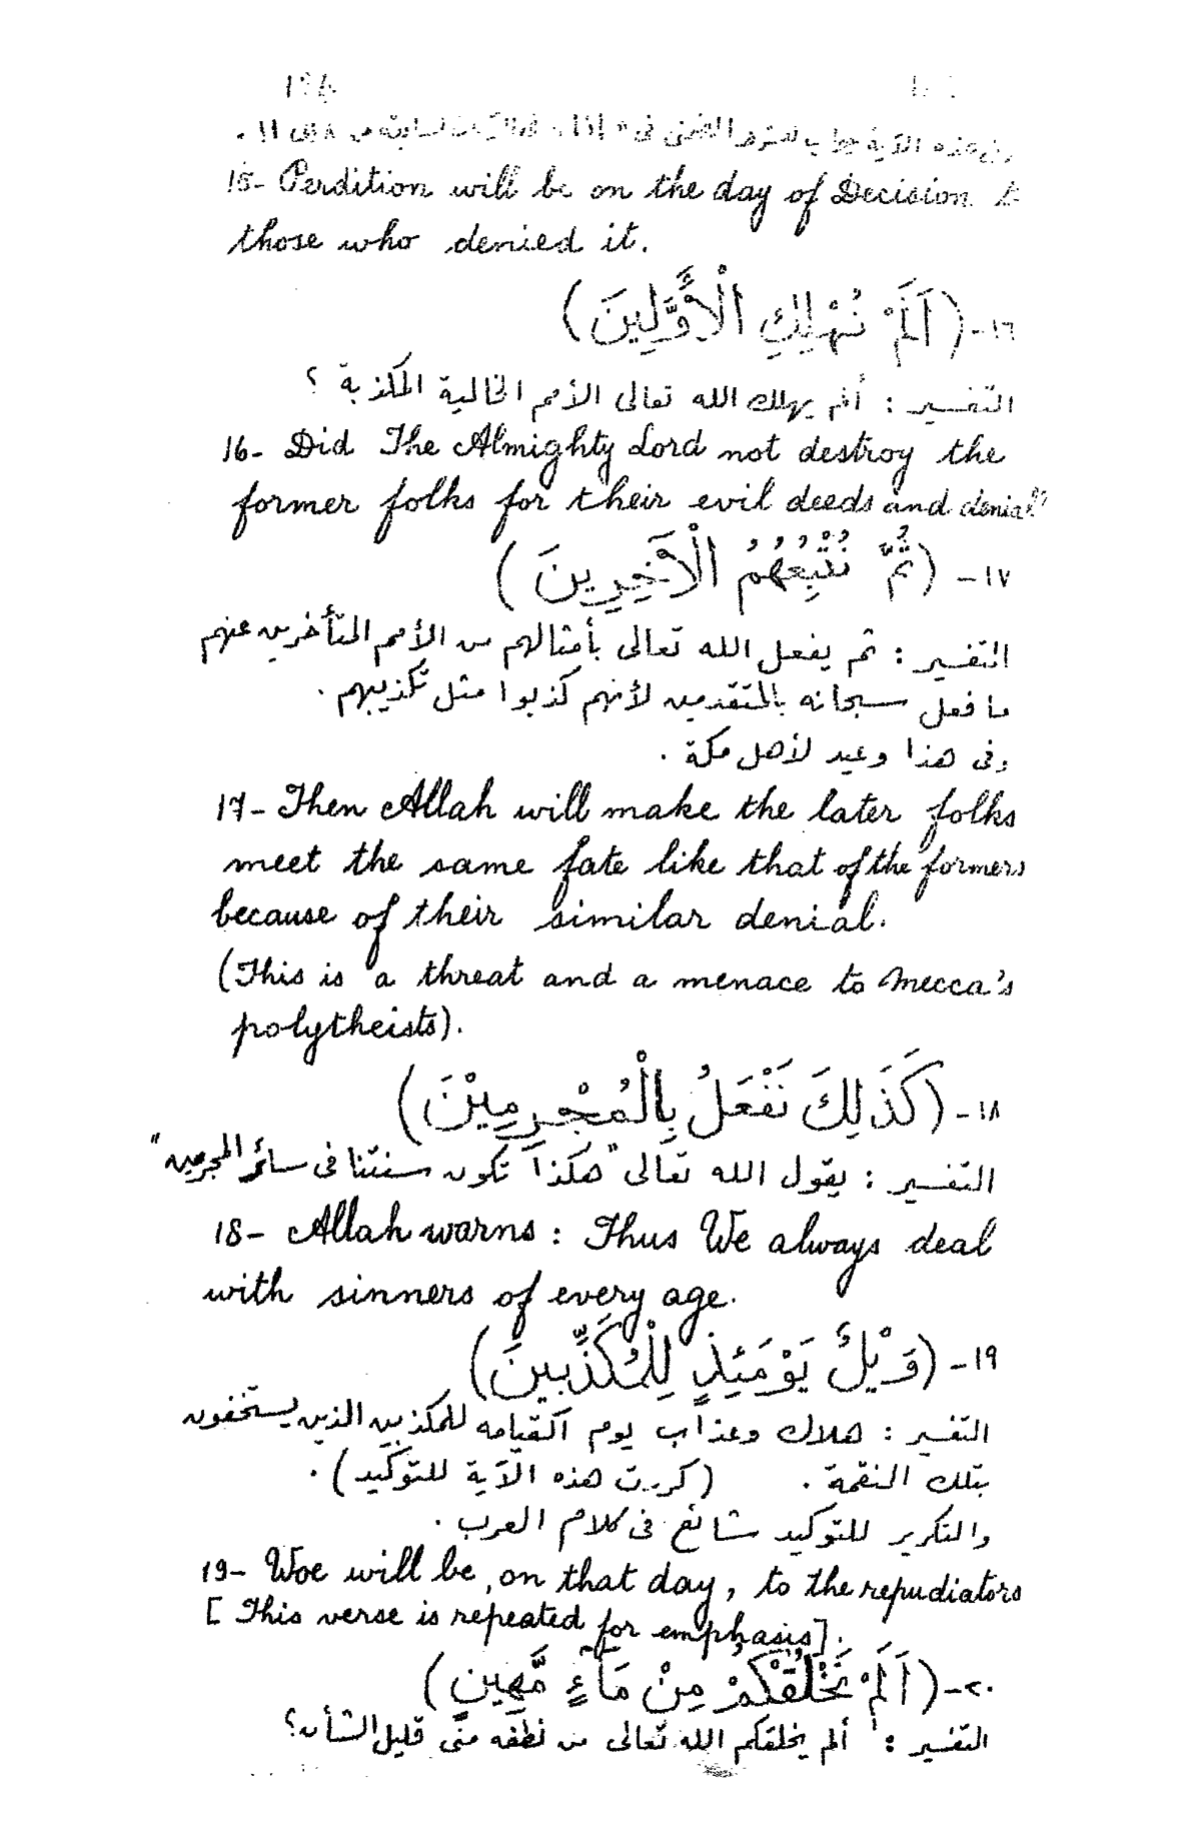 هذه الآية جواب
15- Perdition will be on the day of Decision
those who denied it.
١٦- (اَلَمْ نُهْلِكِ الْأَوَّلِينَ)
التفسير : ألم يهلك الله تعالى الأمم الخالية المكذبة ؟
16- Did The Almighty Lord not destroy the
former folks for their evil deeds and denial
١٧- (ثُمَّ نُتْبِعُهُمُ الْآخِرِينَ)
التفسير : ثم يفعل الله تعالى بأمثالهم من الأمم المتأخرين عنهم
ما فعل سبحانه بالمتقدمين لأنهم كذبوا مثل تكذيبهم .
وفى هذا وعيد لأهل مكة .
17- Then Allah will make the later folks
meet the same fate like that of the formers
because of their similar denial.
(This is a threat and a menace to Mecca's
polytheists).
١٨- (كَذَلِكَ نَفْعَلُ بِالْمُجْرِمِيْنَ)
التفسير : يقول الله تعالى "هكذا تكون سنتنا فى سائر المجرمين"
18- Allah warns : Thus We always deal
with sinners of every age.
١٩- (وَيْلٌ يَوْمَئِذٍ لِلْمُكَذِّبِينَ)
التفسير : هلاك وعذاب يوم القيامه للمكذبين الذين يستخفون
بتلك النقمة . (كررت هذه الآية للتوكيد) .
والتكرير للتوكيد شائع فى كلام العرب .
19- Woe will be, on that day, to the repudiators
[This verse is repeated for emphasis].
٢٠- (اَلَمْ نَخْلُقْكُمْ مِنْ مَآءٍ مَّهِينٍ)
التفسير : ألم يخلقكم الله تعالى من نطفه منى قليل الشأن ؟